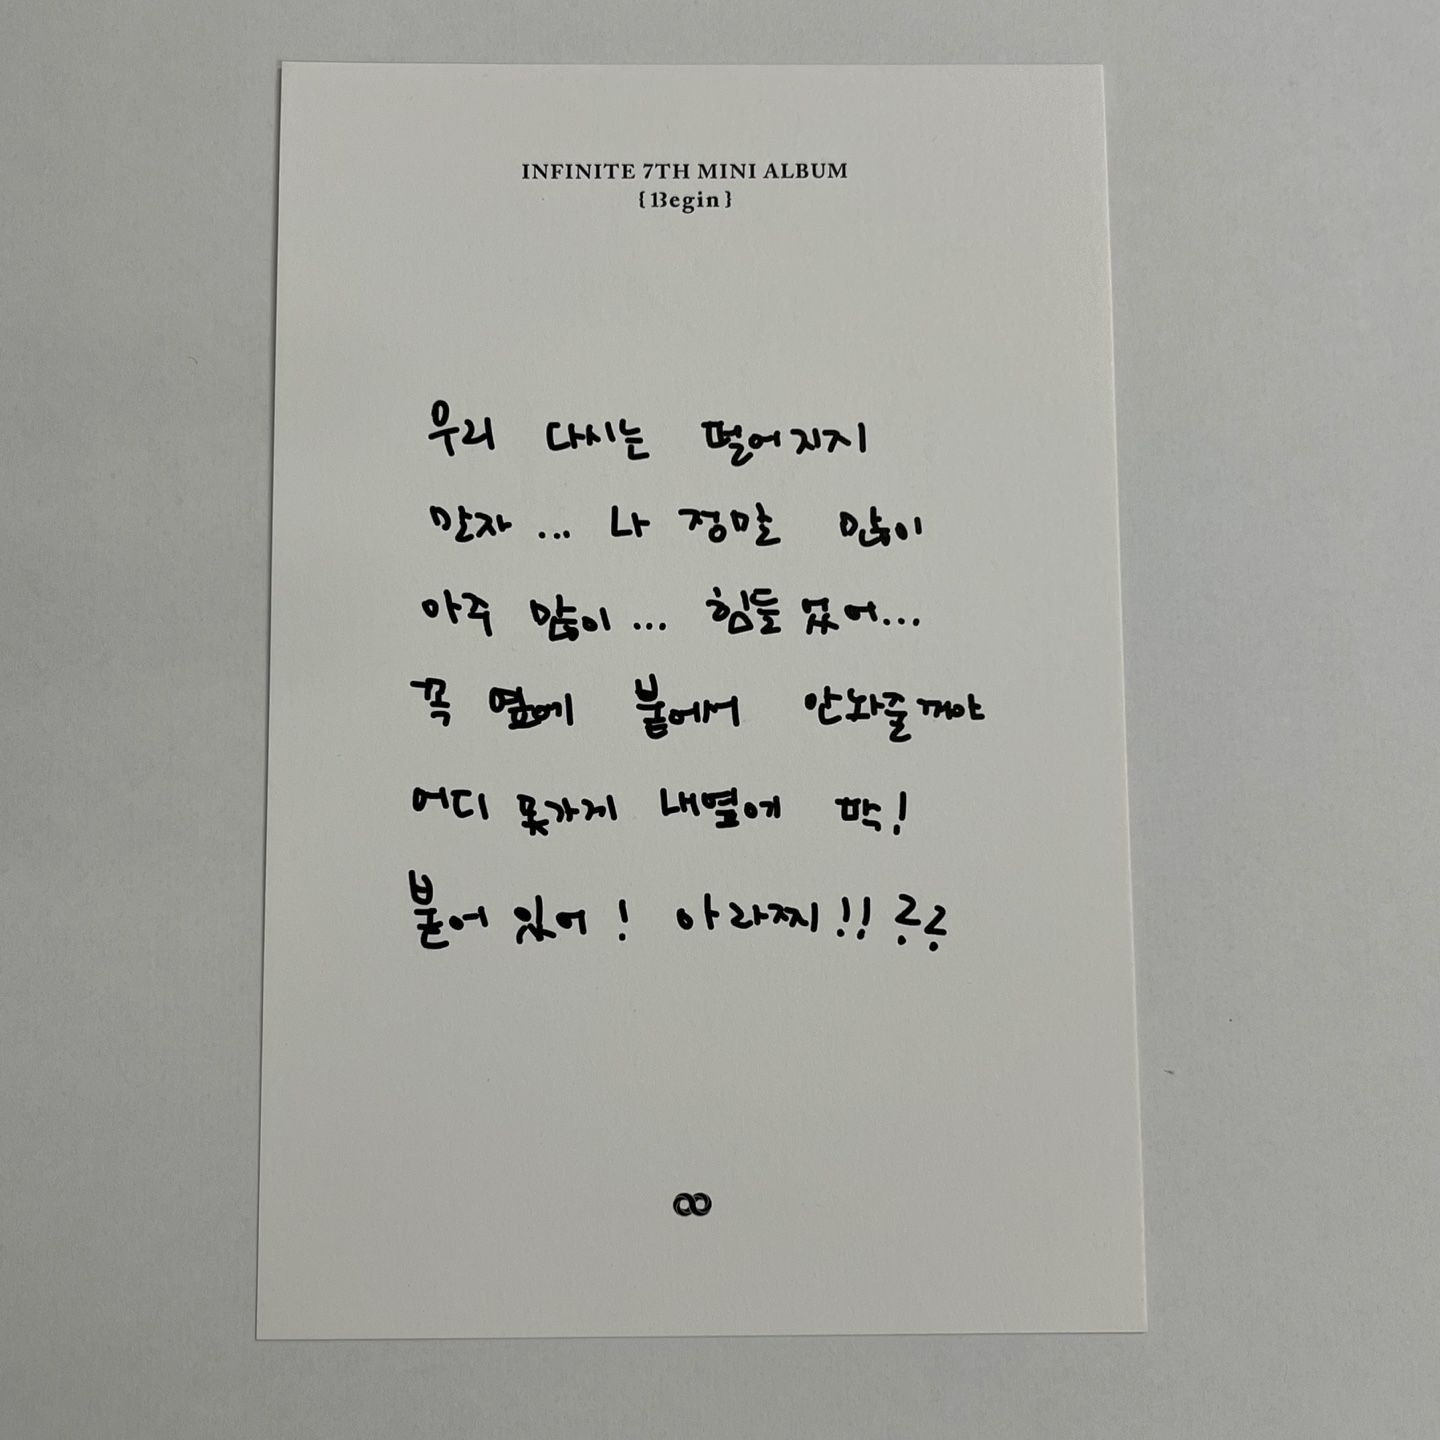 INFINITE 7TH MINI ALBUM
{13egin}
우리 다시는 떨어지지
말자... 나 정말 많이
아주 많이... 힘들었어...
꼭 옆에 붙어서 안놔줄꺼야
어디 못가게 내옆에 딱!
붙어있어! 아라찌!! ??